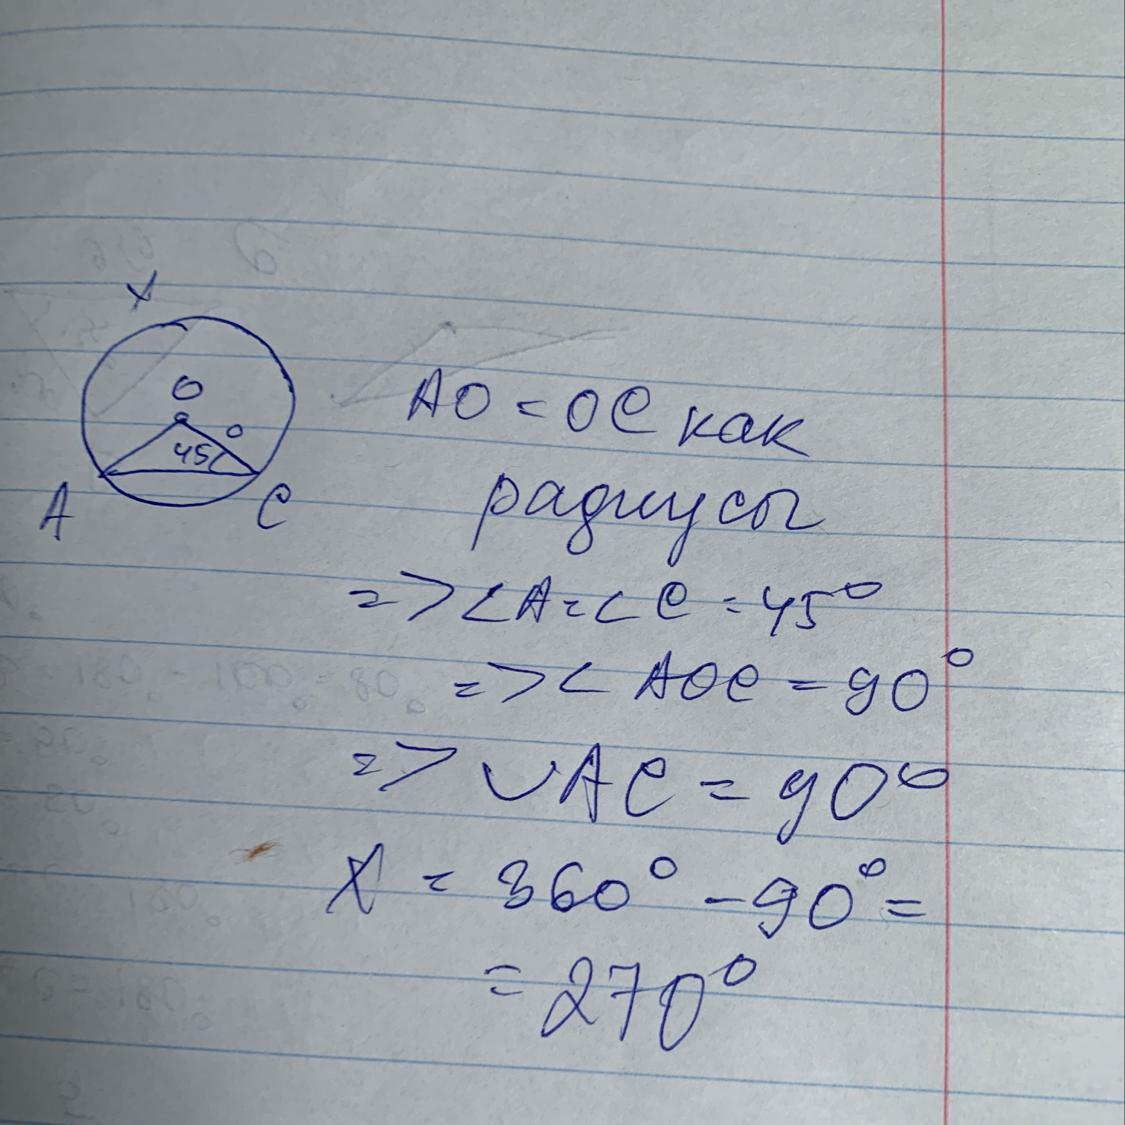 X
O
45°
A
C
AO = OC как
радиусы
=> ∠A = ∠C = 45°
=> ∠AOC = 90°
=> ∪AC = 90°
X = 360° - 90° =
= 270°